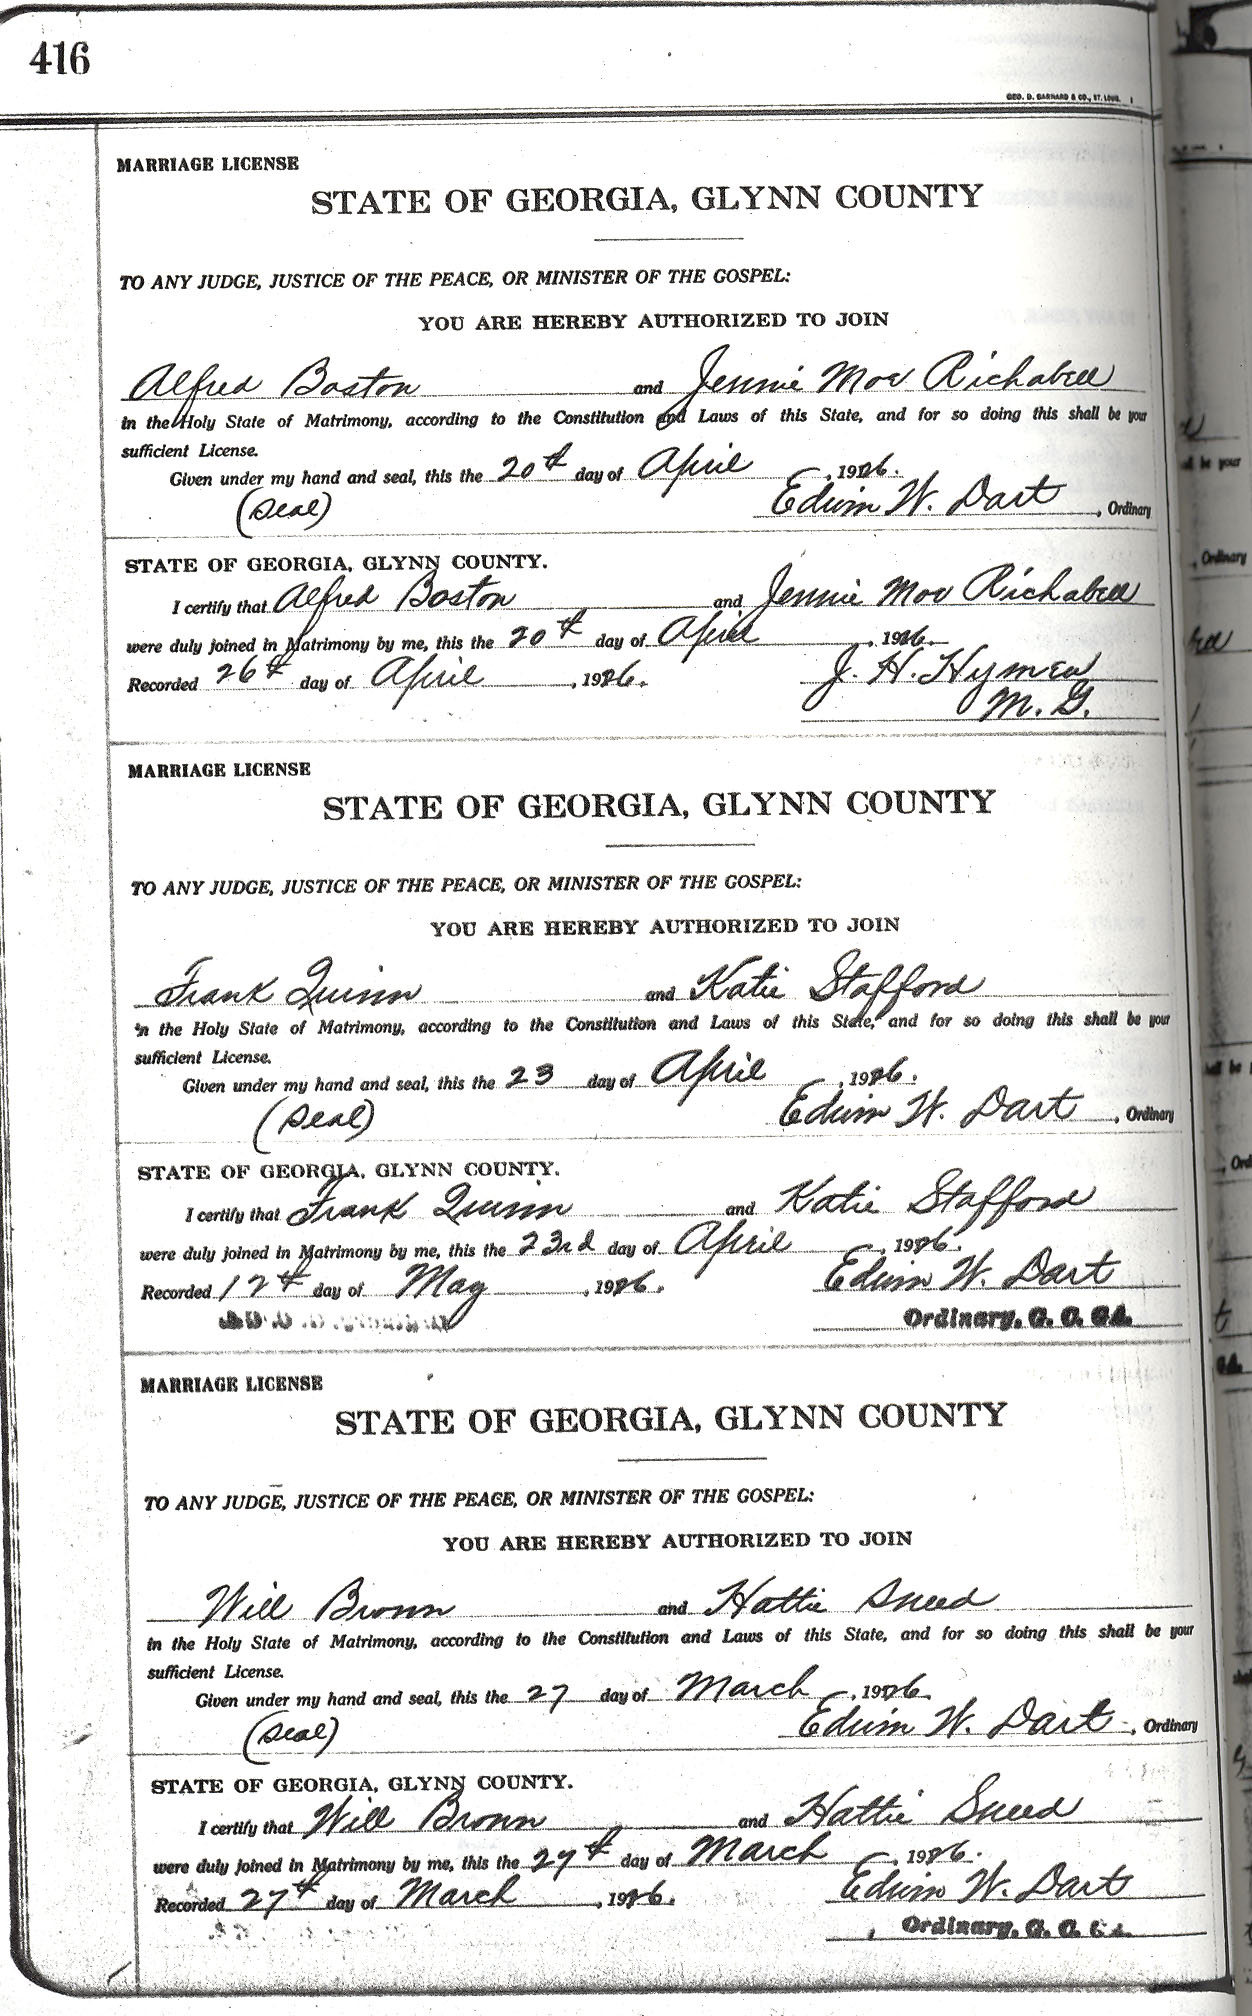 416
GEO. D. BARNARD & CO., ST. LOUIS.
MARRIAGE LICENSE
STATE OF GEORGIA, GLYNN COUNTY
TO ANY JUDGE, JUSTICE OF THE PEACE, OR MINISTER OF THE GOSPEL:
YOU ARE HEREBY AUTHORIZED TO JOIN
Alfred Boston and Jennie Mae Richabell
in the Holy State of Matrimony, according to the Constitution and Laws of this State, and for so doing this shall be your
sufficient License.
Given under my hand and seal, this the 20th day of April, 1926.
(Seal) Edwin W. Dart, Ordinary
STATE OF GEORGIA, GLYNN COUNTY.
I certify that Alfred Boston and Jennie Mae Richabell
were duly joined in Matrimony by me, this the 20th day of April, 1926.
Recorded 26th day of April, 1926. J. H. Hymes
M. G.
MARRIAGE LICENSE
STATE OF GEORGIA, GLYNN COUNTY
TO ANY JUDGE, JUSTICE OF THE PEACE, OR MINISTER OF THE GOSPEL:
YOU ARE HEREBY AUTHORIZED TO JOIN
Frank Quinn and Katie Stafford
in the Holy State of Matrimony, according to the Constitution and Laws of this State, and for so doing this shall be your
sufficient License.
Given under my hand and seal, this the 23 day of April, 1926.
(Seal) Edwin W. Dart, Ordinary
STATE OF GEORGIA, GLYNN COUNTY.
I certify that Frank Quinn and Katie Stafford
were duly joined in Matrimony by me, this the 23rd day of April, 1926.
Recorded 12th day of May, 1926. Edwin W. Dart
Ordinary, G. C. GA.
MARRIAGE LICENSE
STATE OF GEORGIA, GLYNN COUNTY
TO ANY JUDGE, JUSTICE OF THE PEACE, OR MINISTER OF THE GOSPEL:
YOU ARE HEREBY AUTHORIZED TO JOIN
Will Brown and Hattie Sneed
in the Holy State of Matrimony, according to the Constitution and Laws of this State, and for so doing this shall be your
sufficient License.
Given under my hand and seal, this the 27 day of March, 1926.
(Seal) Edwin W. Dart, Ordinary
STATE OF GEORGIA, GLYNN COUNTY.
I certify that Will Brown and Hattie Sneed
were duly joined in Matrimony by me, this the 27th day of March, 1926.
Recorded 27th day of March, 1926. Edwin W. Dart
Ordinary, G. C. GA.